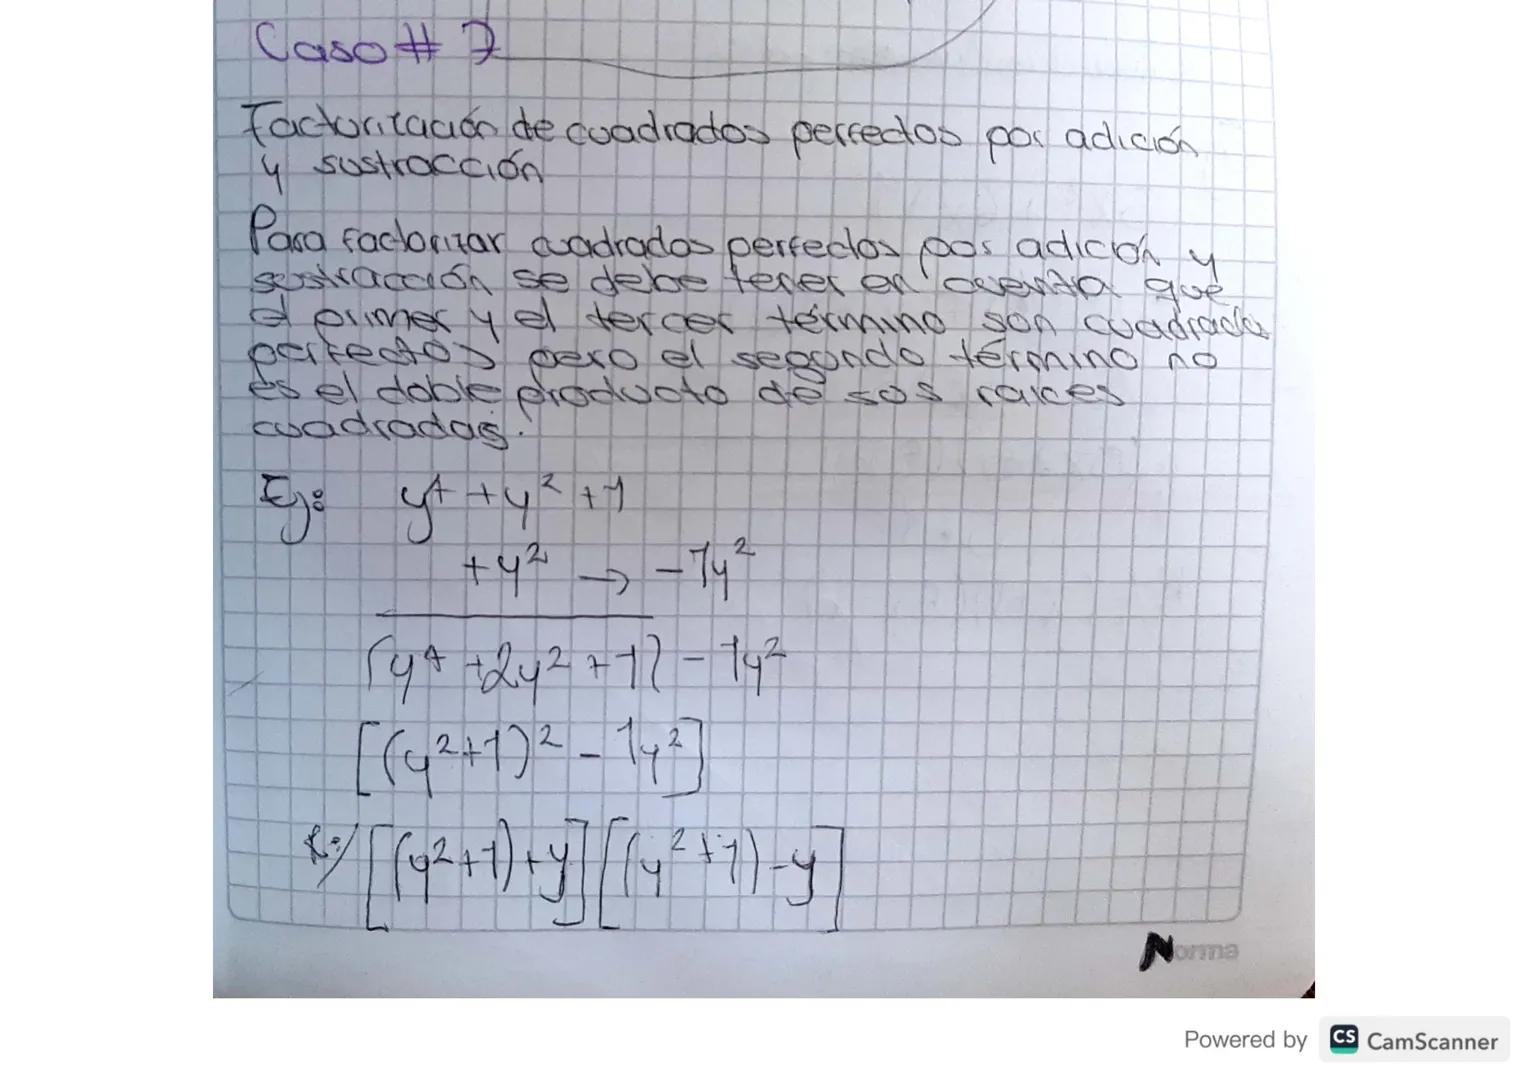 Caso # 7
Factorización de cuadrados perfectos por adición
y sustracción
Para factorizar cuadrados perfectos por adición y
sustracción se debe tener en cuenta que
el primer y el tercer término son cuadrados
perfectos pero el segundo término no
es el doble producto de sus raíces
cuadradas.
Ej: y⁴ + y² + 1
+ y² → - 1y²
(y⁴ + 2y² + 1) - 1y²
[(y² + 1)² - 1y²]
R:/ [(y² + 1) + y] [(y² + 1) - y]
Norma
Powered by CS CamScanner